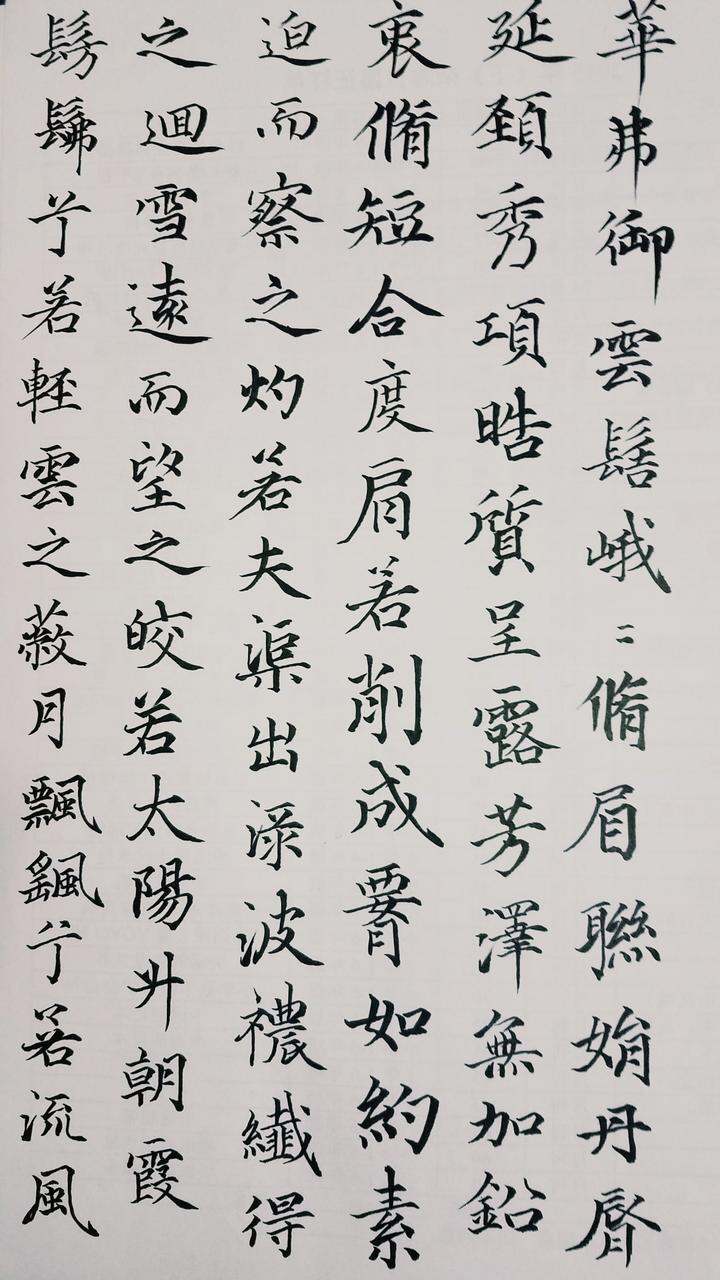 髣髴兮若軽雲之蔽月飄颻兮若流風
之迴雪遠而望之皎若太陽升朝霞
迫而察之灼若夫渠出淥波禯纖得
衷脩短合度肩若削成腰如約素
延頚秀項晧質呈露芳澤無加鉛
華弗御雲髻峨〻脩眉聯娟丹脣